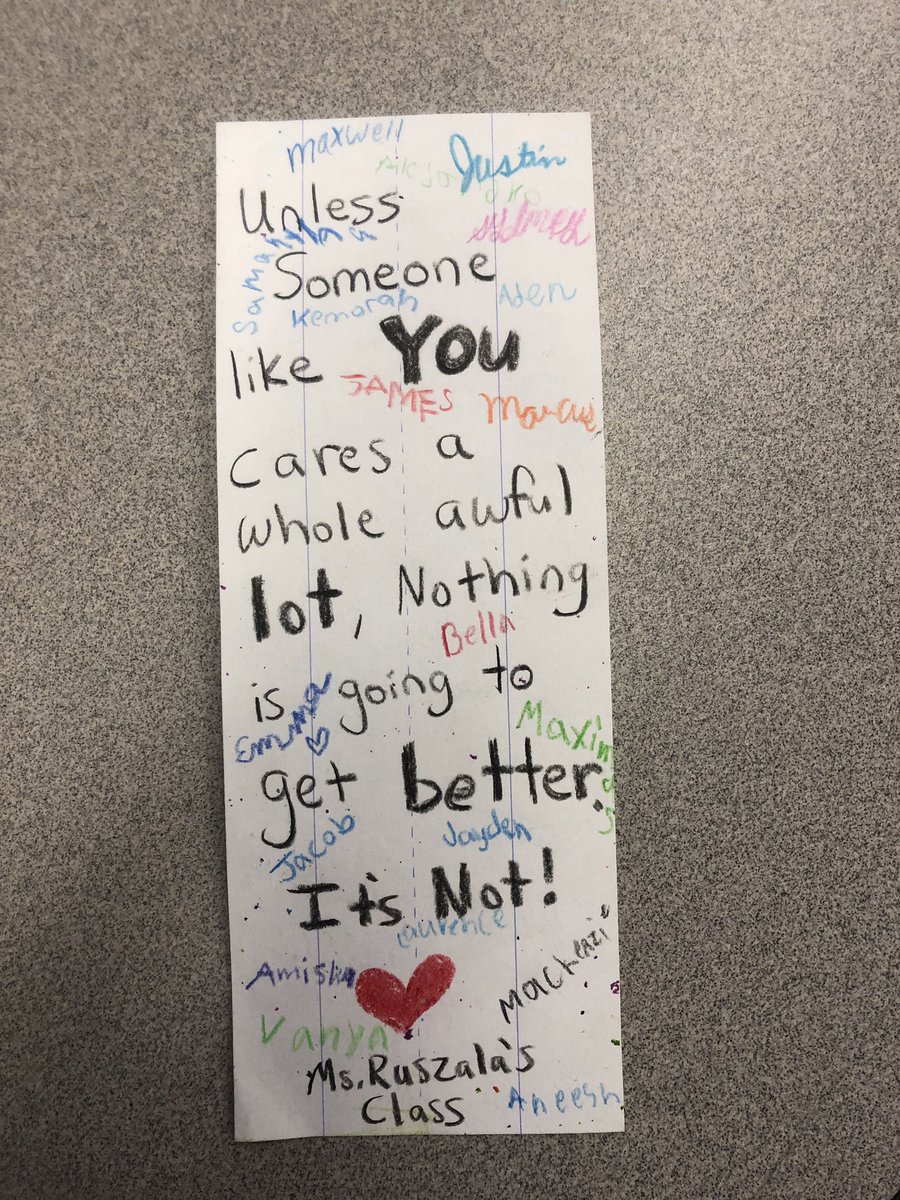 maxwell
Justin
Unless
Someone
Kemorah
Aden
like You
JAMES
Marcus
cares a
whole awful
lot, Nothing
Bella
is going to
Emma
Maximus
get better.
Jacob
Jayden
It's Not!
Laurence
Amisha
Vanya
Ms. Ruszala's
Class
Aneesh